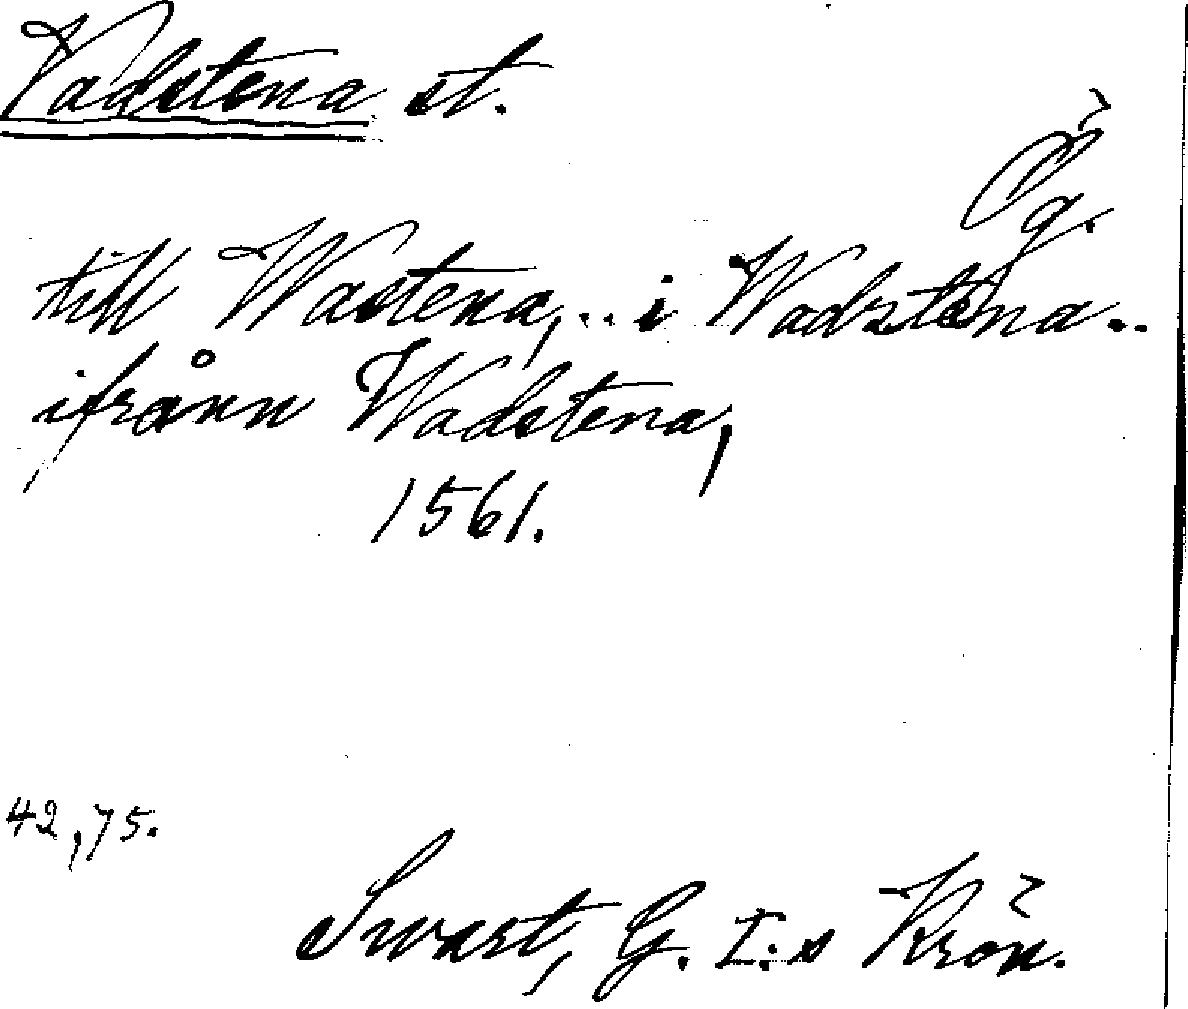 Vadstena st.
Ög.
till Wastena, .. i Wadstena ..
ifrånn Wadstena,
1561.
42, 75.
Swart, G. I:s Krön.